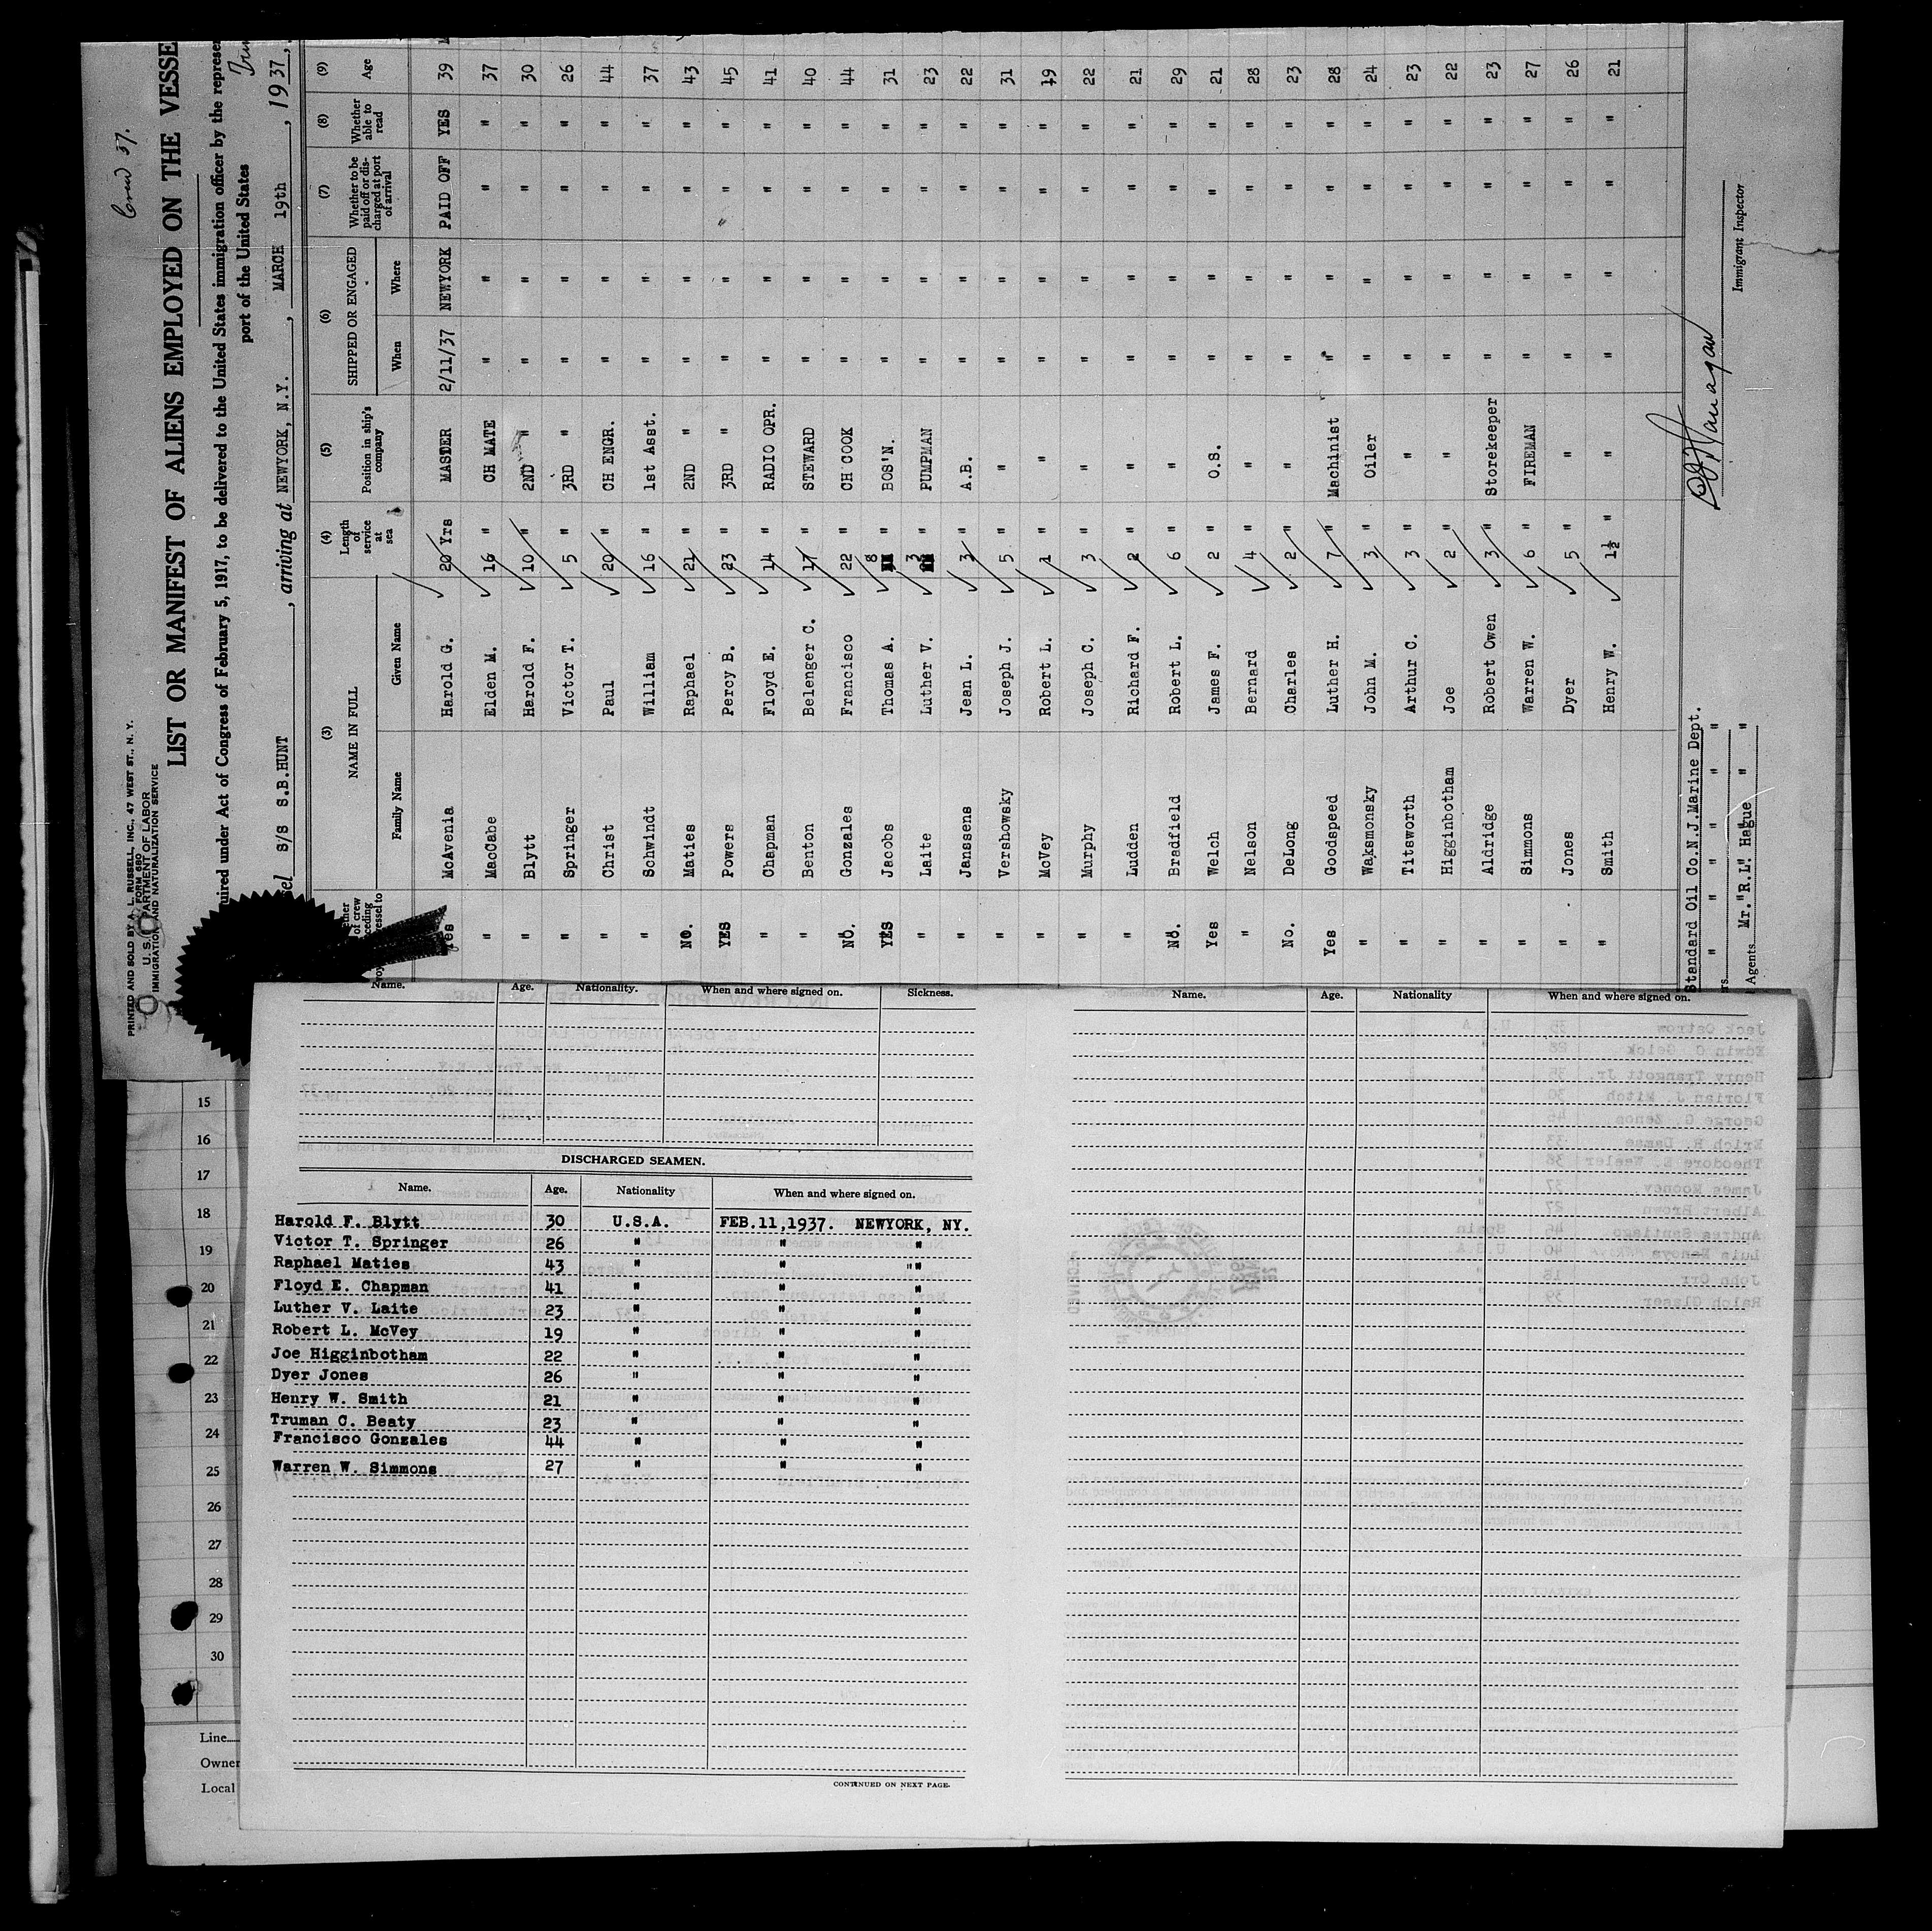 PRINTED AND SOLD BY A. L. RUSSELL, INC., 47 WEST ST., N. Y.
FORM 680
U. S. DEPARTMENT OF LABOR
IMMIGRATION AND NATURALIZATION SERVICE
Crew 37.
LIST OR MANIFEST OF ALIENS EMPLOYED ON THE VESSE
uired under Act of Congress of February 5, 1917, to be delivered to the United States immigration officer by the represen
port of the United States
sel S/S S.B.HUNT, arriving at NEWYORK, N.Y., MARCH 19th, 1937,
(3) (4) (5) (6) (7) (8) (9)
NAME IN FULL Length of service at sea Position in ship's company SHIPPED OR ENGAGED Whether to be paid off or discharged at port of arrival Whether able to read Age
Family Name Given Name When Where
Yes McAvenia Harold G. 20 Yrs MASTER 2/11/37 NEWYORK PAID OFF YES 39
" MacCabe Elden M. 16 " CH MATE " " " " 37
" Blytt Harold F. 10 " 2ND " " " " " 30
" Springer Victor T. 5 " 3RD " " " " " 26
" Christ Paul 20 " CH ENGR. " " " " 44
" Schwindt William 16 " 1st Asst. " " " " 37
NO. Maties Raphael 21 " 2ND " " " " " 43
YES Powers Percy B. 23 " 3RD " " " " " 45
" Chapman Floyd E. 14 " RADIO OPR. " " " " 41
" Benton Belenger C. 17 " STEWARD " " " " 40
NO. Gonzales Francisco 22 " CH COOK " " " " 44
YES Jacobs Thomas A. 8 " BOS'N. " " " " 31
" Laite Luther V. 3 " PUMPMAN " " " " 23
" Janssens Jean L. 3 " A.B. " " " " 22
" Vershowsky Joseph J. 5 " " " " " " 31
" McVey Robert L. 1 " " " " " " 19
" Murphy Joseph C. 3 " " " " " " 22
" Ludden Richard F. 2 " " " " " " 21
No. Bradfield Robert L. 6 " " " " " " 29
Yes Welch James F. 2 " O.S. " " " " 21
" Nelson Bernard 4 " " " " " " 28
No. DeLong Charles 2 " " " " " " 23
Yes Goodspeed Luther H. 7 " Machinist " " " " 28
" Waksmonsky John M. 3 " Oiler " " " " 24
" Titsworth Arthur C. 3 " " " " " " 23
" Higginbotham Joe 2 " " " " " " 22
" Aldridge Robert Owen 3 " Storekeeper " " " " 23
" Simmons Warren W. 6 " FIREMAN " " " " 27
" Jones Dyer 5 " " " " " " 26
" Smith Henry W. 1½ " " " " " " 21
Standard Oil Co.N.J.Marine Dept.
rs " " " " " "
Agents Mr."R.L." Hague " "
Immigrant Inspector
Name. Age. Nationality. When and where signed on. Sickness.
DISCHARGED SEAMEN.
Name. Age. Nationality When and where signed on.
Harold F. Blytt 30 U.S.A. FEB.11,1937. NEWYORK, NY.
Victor T. Springer 26 " " "
Raphael Maties 43 " " ""
Floyd E. Chapman 41 " " "
Luther V. Laite 23 " " "
Robert L. McVey 19 " " "
Joe Higginbotham 22 " " "
Dyer Jones 26 " " "
Henry W. Smith 21 " " "
Truman C. Beaty 23 " " "
Francisco Gonzales 44 " " "
Warren W. Simmons 27 " " "
CONTINUED ON NEXT PAGE.
Name. Age. Nationality When and where signed on.
15
16
17
18
19
20
21
22
23
24
25
26
27
28
29
30
Line
Owner
Local